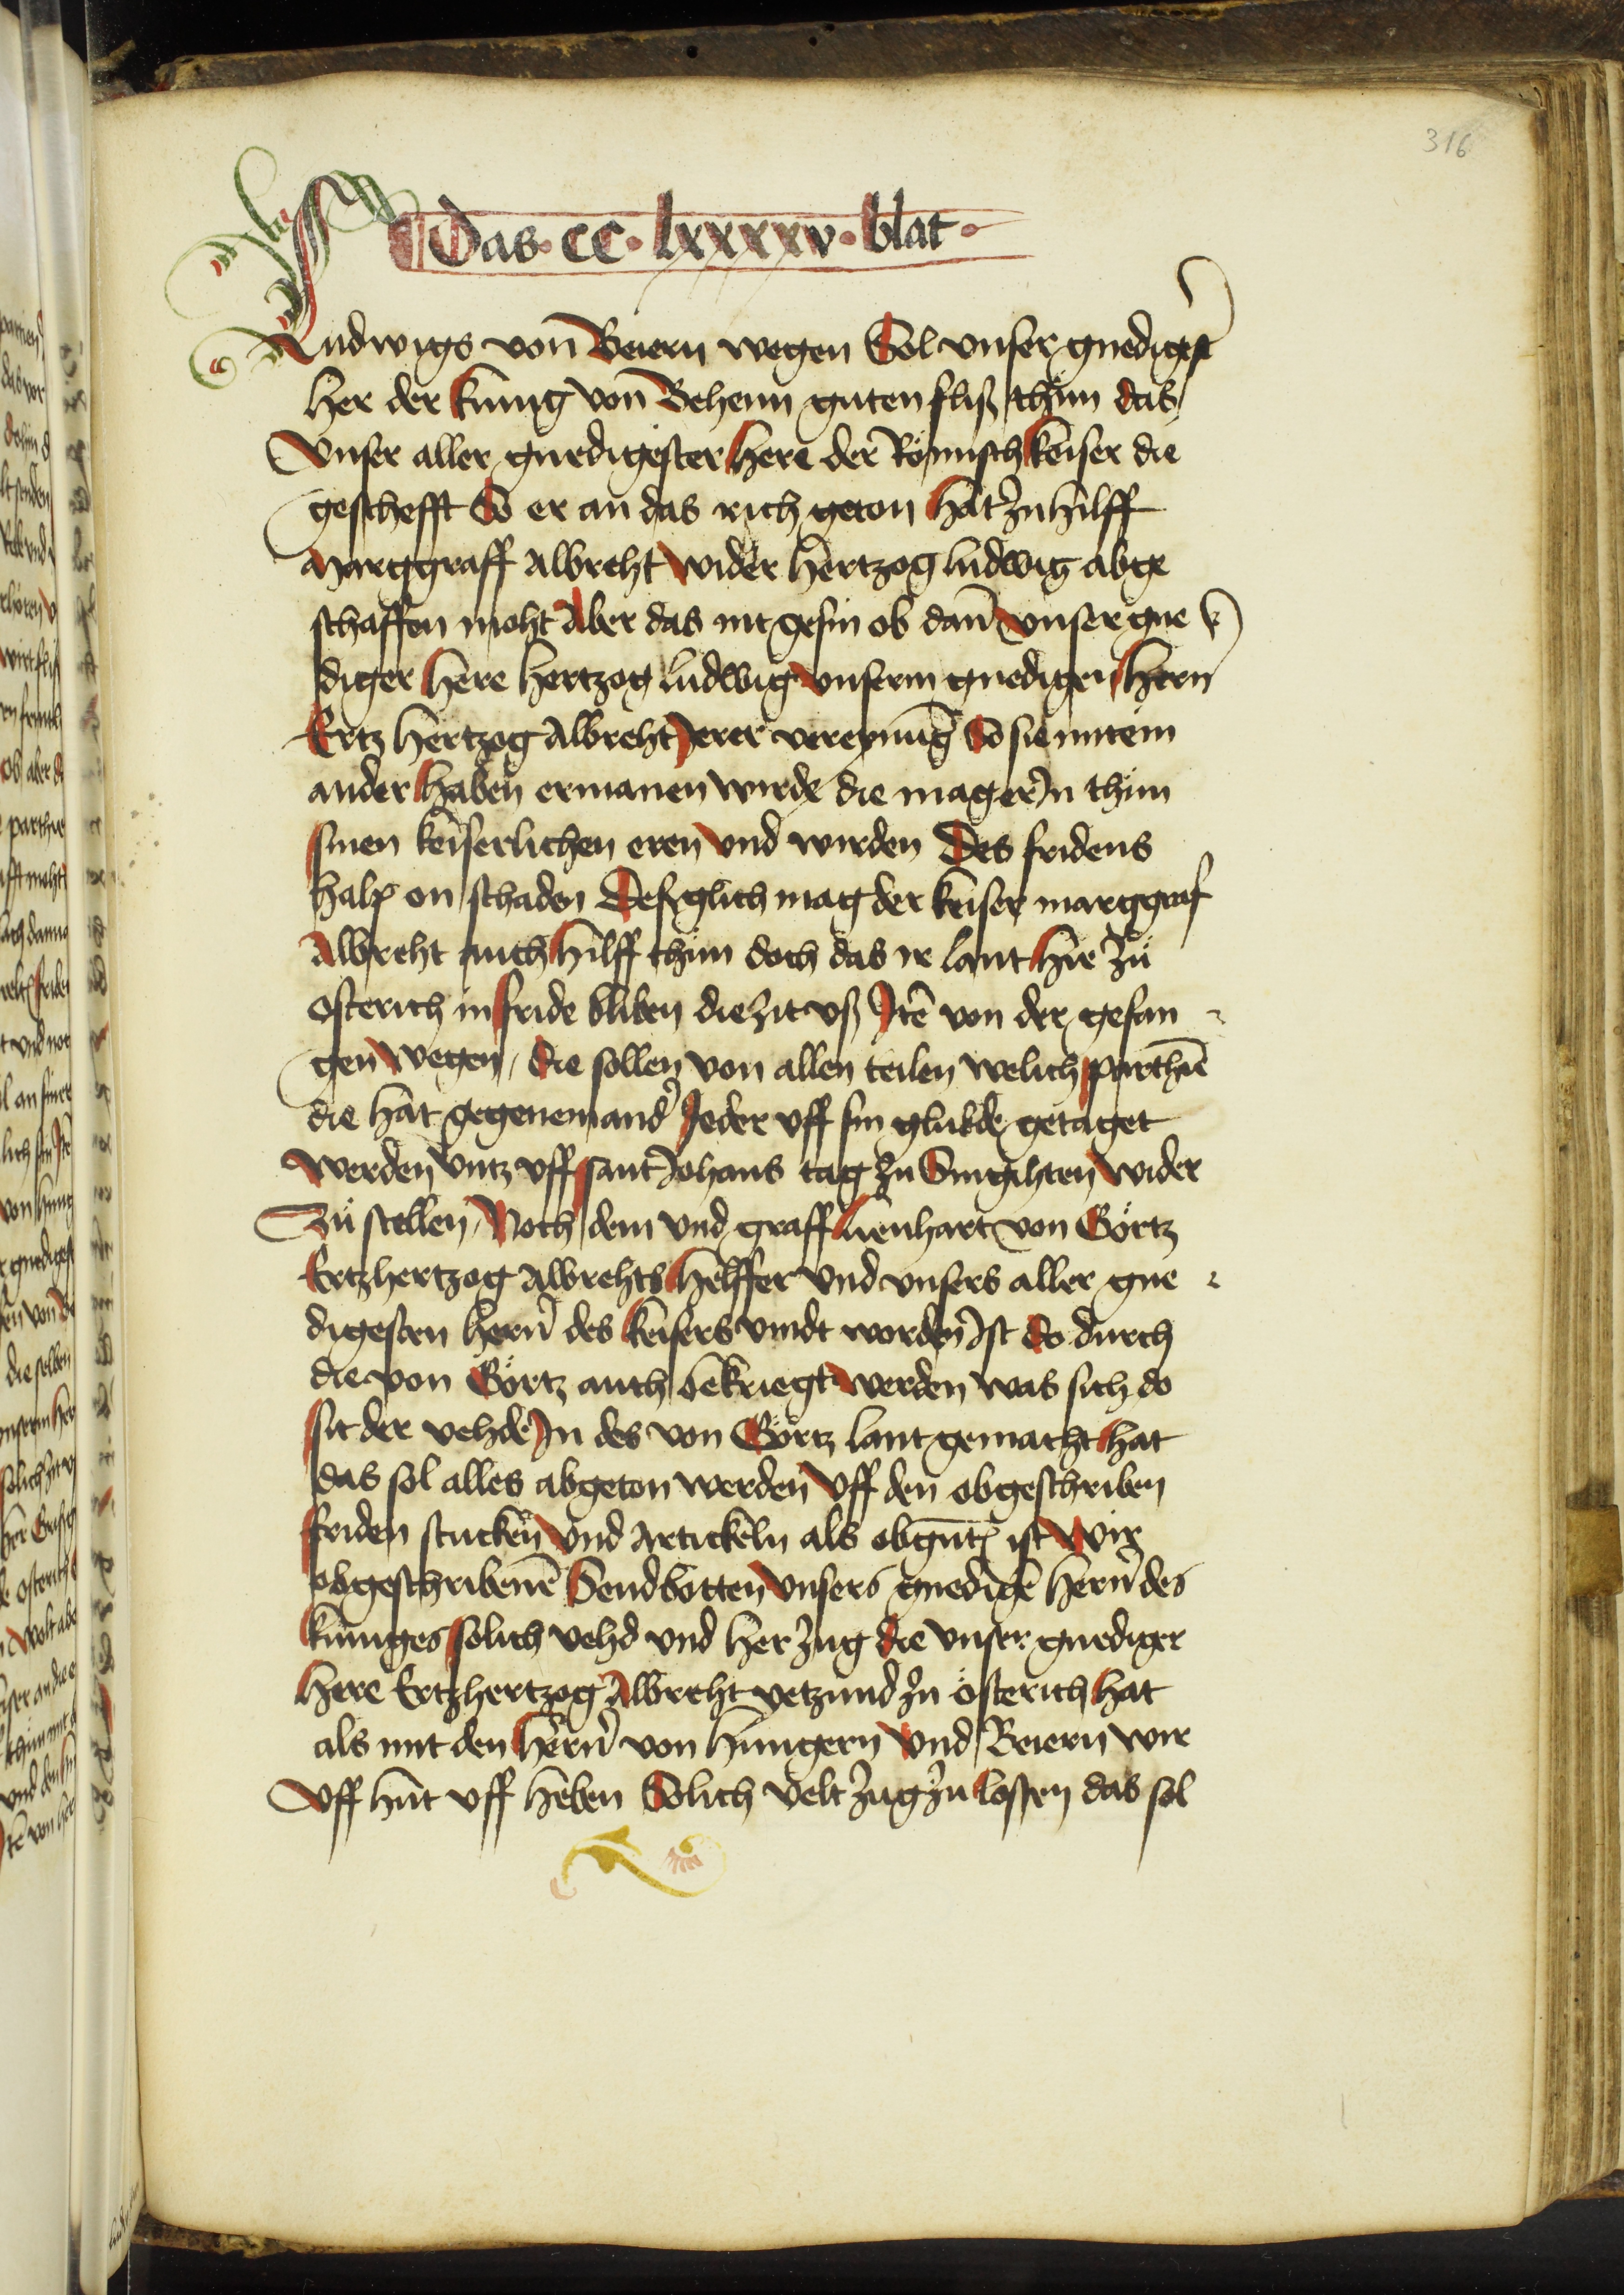 316
Das · cc · lxxxxv · blat ·
Ludwigs von Beiern wegen Sol vnser gnedigest
her der kunig von Behem guten fliß thuͦn das
Vnser aller gnedigester here der Roͤmisch keiser die
geschefft So er an das rich geton hat zu hilff
Marggraff Albreht wider hertzog ludwig abge
schaffen moht Aber das nit gesin ob dan̄ vnser gne
diger here hertzog ludwig vnserm gnedigen hern
Ertz hertzog Albreht Jerer vereynung So sie mitein
ander haben ermanen wirde die mag er Jn thuͦn
sinen keiserlichen eren vnd wirden Des fridens
halp on schaden Desglich mag der keiser marggraf
Albreht auch hilff thuͦn doch das ir lant hie zuͦ
osterich in fride bliben die zit vß Itē von der gefan
gen wegen / die sollen von allen teilen welich parthie
die hat gegenemand' Jeder vff sin glubde getaget
werden vntz vff sant Johans tag zu Sungihten wider
Zuͦ stellen / Noch dem vnd graff lienhart von Goͤrtz
Ertzhertzog Albrehts helffer vnd vnsers aller gne
digesten hern̄ des keisers vindt worden Ist So durch
die von Goͤrtz auch bekriegt werden was sich do
sit der vehde Jn des von Goͤrtz lant gemacht hat
das sol alles abgeton werden vff den obgeschriben
friden stucken vnd Artickeln als obgn̄t ist Wir
obgeschribenē Sendbotten vnsers gnedigē hern̄ des
kuniges solich vehd vnd her zug die vnser gnediger
here Ertzhertzog Albreht yetzund zu oͤsterich hat
als mit den hern̄ von hungern vnd Beiern wir
vff huͤt vff heben Solich velt zug zu lossen das sol